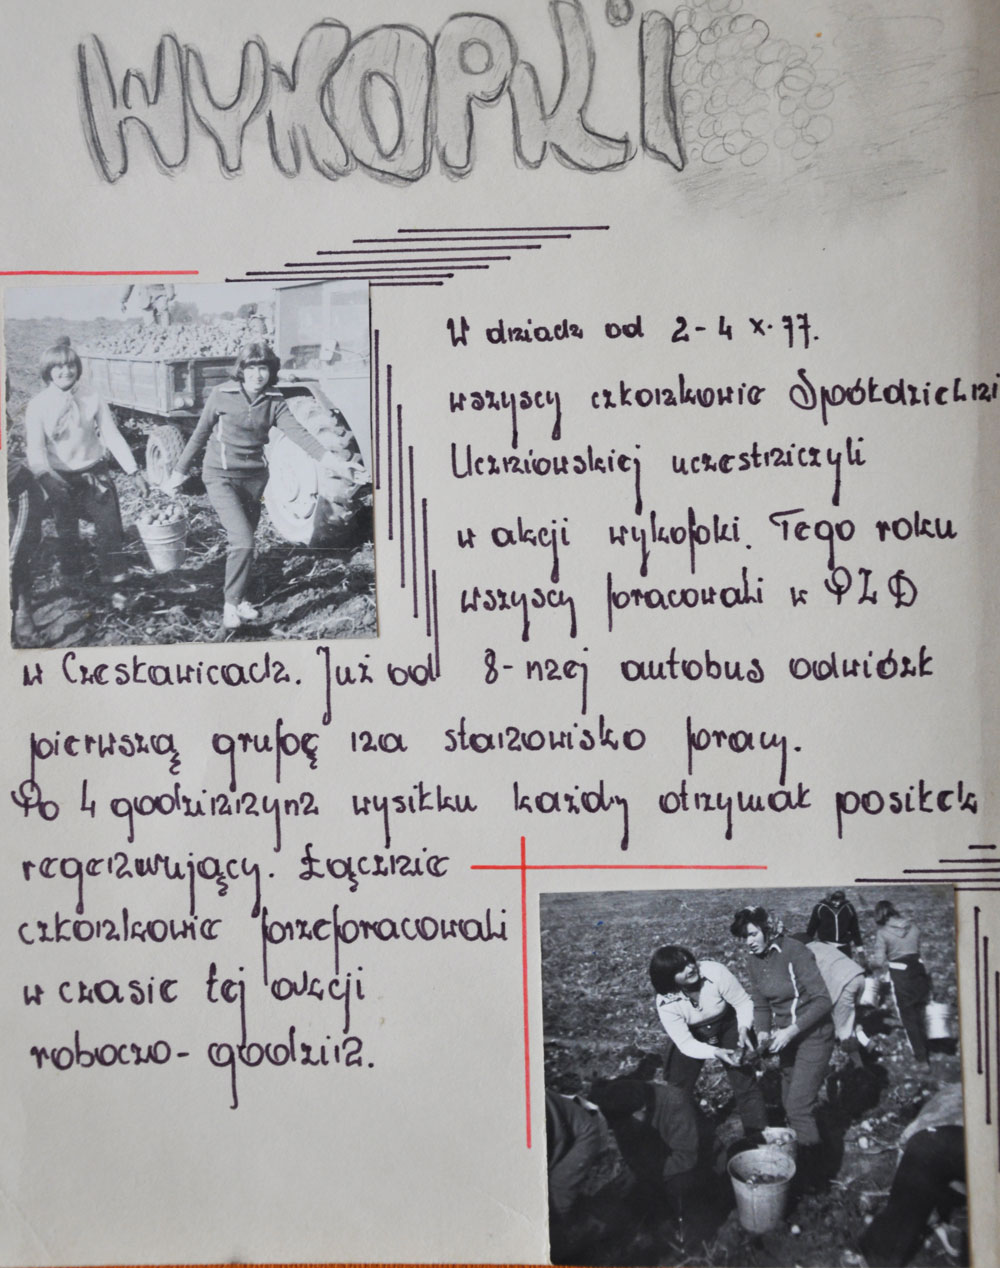 WYKOPKI
W dniach od 2-4 X.77.
wszyscy członkowie Spółdzielni
Uczniowskiej uczestniczyli
w akcji wykopki. Tego roku
wszyscy pracowali w PZD
w Czesławicach. Już od 8-mej autobus odwiózł
pierwszą grupę na stanowisko pracy.
Po 4 godzinnym wysiłku każdy otrzymał posiłek
regenerujący. Łącznie
członkowie przepracowali
w czasie tej akcji
roboczo-godzin.